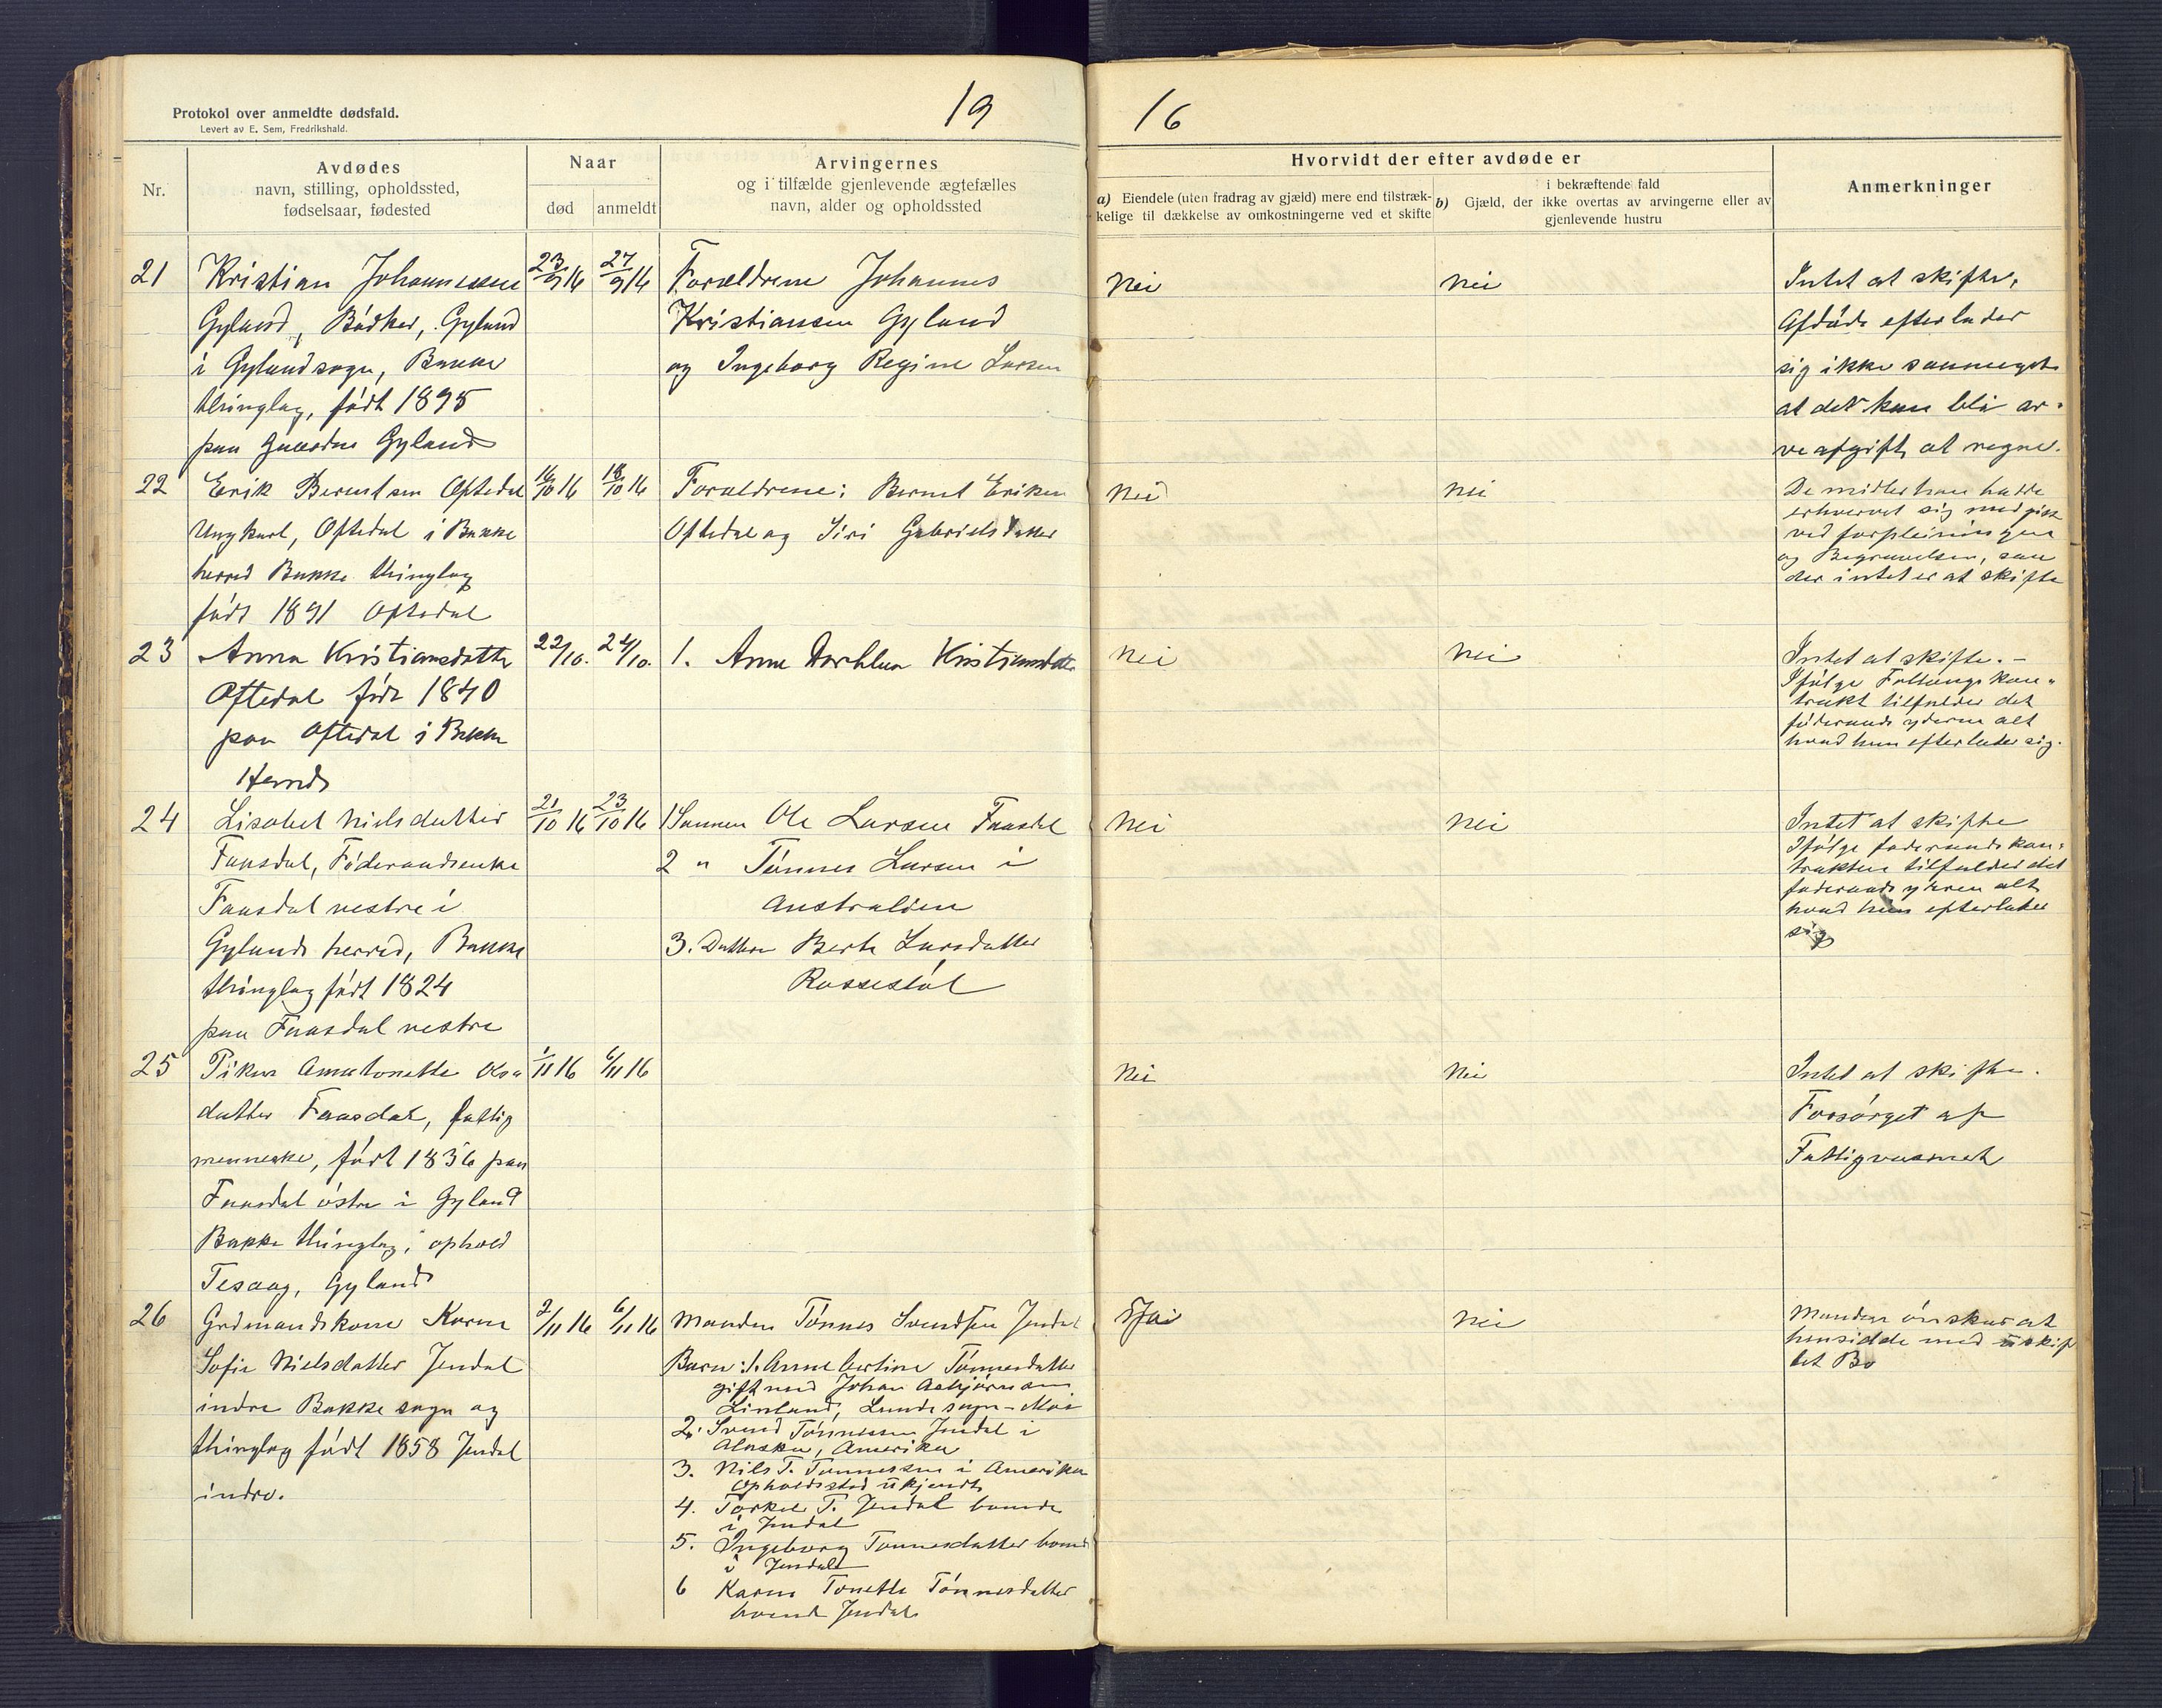 19 16
Protokol over anmeldte dødsfald.
Levert av E. Sem, Fredrikshald.
Nr.
Avdødes
navn, stilling, opholdssted,
fødselsaar, fødested
Naar
død anmeldt
Arvingernes
og i tilfælde gjenlevende ægtefælles
navn, alder og opholdssted
Hvorvidt der efter avdøde er
a) Eiendele (uten fradrag av gjæld) mere end tilstræk-
kelige til dækkelse av omkostningerne ved et skifte
i bekræftende fald
b) Gjæld, der ikke overtas av arvingerne eller av
gjenlevende hustru
Anmerkninger
21
Kristian Johannessen
Gyland, Bødker, Gyland
i Gylandsogn, Bakke
thinglag, født 1895
paa Gaarden Gyland
23/9 16 27/9 16
Forældrene Johannes
Kristiansen Gyland
og Ingeborg Regine Larsen
Nei
Nei
Intet at skifte,
Afdøde efterlader
sig ikke saameget
at det kan bli ar-
veafgift at regne.
22
Erik Berentsen Oftedal
Ungkarl, Oftedal i Bakke
herred Bakke thinglag
født 1891 Oftedal
16/10 16 18/10 16
Forældrene: Bernt Eriksen
Oftedal og Siri Gabrielsdatter
Nei
Nei
De midler han hadde
erhvervet sig medgik
ved forpleiningen
og Begravelsen, saa
der intet er at skifte
23
Anna Kristiansdatter
Oftedal født 1840
paa Oftedal i Bakke
Herred
22/10. 24/10.
1. Anne Dorthea Kristiansdatter
Nei
Nei
Intet at skifte. –
Ifølge Føllaugskon-
trakt tilfalder det
føderaadsyderne alt
hvad hun efterlader sig.
24
Lisabet Nielsdatter
Faasdal, Føderaadsenke
Faasdal vestre i
Gylands herred, Bakke
thinglag født 1824
paa Faasdal vestre
21/10 16 23/10 16
1 Sønnen Ole Larsen Faasdal
2 " Tønnes Larsen i
Australien
3. Datteren Berte Larsdatter
Rossestøl
Nei
Nei
Intet at skifte
Ifølge føderaadskon-
trakten tilfalder det
føderaadsyderen alt
hvad hun efterlader
sig
25
Piken Anne Tonette Ols-
datter Faasdal, fattig
menneske, født 1836 paa
Faasdal østre i Gyland
Bakke thinglag, ophold
Tesaag, Gyland
1/11 16 6/11 16
Nei
Nei
Intet at skifte.
Forsørget af
Fattigvæsenet
26
Grdmandskone Karen
Sofie Nielsdatter Jendal
indre Bakke sogn og
thinglag født 1858 Jendal
indre.
2/11 16 6/11 16
Manden Tønnes Svendsen Jendal
Barn: 1. Anne Bertine Tønnesdatter
gift med Johan Asbjørnsen
Linland, Lunde sogn – Moi
2. Svend Tønnessen Jendal i
Alaska, Amerika
3. Nils T. Tønnessen i Amerika
Opholdssted ukjendt
4. Torkel T. Jendal boende
i Jendal
5. Ingeborg Tønnesdatter boende
i Jendal
6 Karen Tonette Tønnesdatter
boende Jendal
Ja
Nei
Manden ønsker at
hensidde med uskif
tet Bo